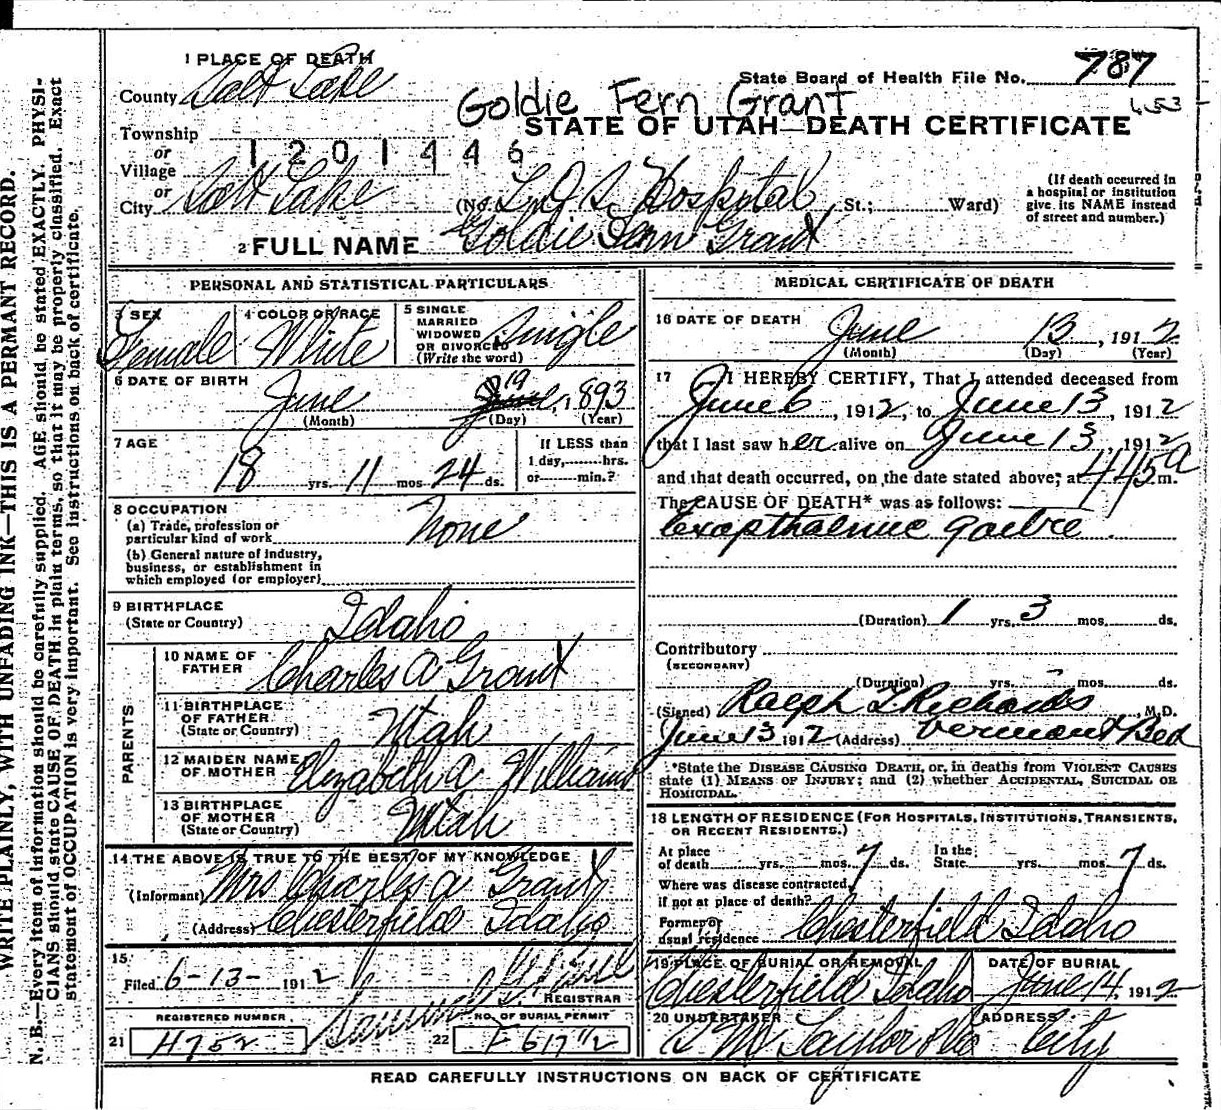 1 PLACE OF DEATH
County Salt Lake
State Board of Health File No. 787
Goldie Fern Grant
STATE OF UTAH—DEATH CERTIFICATE
Township
or
1201446
Village
or
City Salt Lake (No. L.D.S. Hospital St.; Ward)
(If death occurred in a hospital or institution give its NAME instead of street and number.)
2 FULL NAME Goldie Fern Grant
PERSONAL AND STATISTICAL PARTICULARS
3 SEX Female
4 COLOR OR RACE White
5 SINGLE MARRIED WIDOWED OR DIVORCED (Write the word) Single
6 DATE OF BIRTH June 19, 1893
(Month) (Day) (Year)
7 AGE
18 yrs. 11 mos. 24 ds.
If LESS than
1 day, hrs.
or min.?
8 OCCUPATION
(a) Trade, profession or
particular kind of work None
(b) General nature of industry,
business, or establishment in
which employed (or employer)
9 BIRTHPLACE
(State or Country) Idaho
PARENTS
10 NAME OF
FATHER Charles A Grant
11 BIRTHPLACE
OF FATHER
(State or Country) Utah
12 MAIDEN NAME
OF MOTHER Elizabeth A Williams
13 BIRTHPLACE
OF MOTHER
(State or Country) Utah
14 THE ABOVE IS TRUE TO THE BEST OF MY KNOWLEDGE
(Informant) Mrs Charles A Grant
(Address) Chesterfield Idaho
15
Filed 6-13- 1912
REGISTRAR
REGISTERED NUMBER
21 H752
NO. OF BURIAL PERMIT
22
MEDICAL CERTIFICATE OF DEATH
16 DATE OF DEATH June 13, 1912
(Month) (Day) (Year)
17 I HEREBY CERTIFY, That I attended deceased from
June 6, 1912, to June 13, 1912
that I last saw her alive on June 13, 1912
and that death occurred, on the date stated above, at 445 a m.
The CAUSE OF DEATH* was as follows:
Exopthalmic Goitre
(Duration) 1 yrs. 3 mos. ds.
Contributory
(SECONDARY)
(Duration) yrs. mos. ds.
(Signed) Ralph T Richards M.D.
June 13 1912 (Address) Vermont Bld
*State the DISEASE CAUSING DEATH, or, in deaths from VIOLENT CAUSES
state (1) MEANS OF INJURY; and (2) whether ACCIDENTAL, SUICIDAL OR
HOMICIDAL.
18 LENGTH OF RESIDENCE (FOR HOSPITALS, INSTITUTIONS, TRANSIENTS,
OR RECENT RESIDENTS.)
At place
of death yrs. mos. 7 ds.
In the
State yrs. mos. 7 ds.
Where was disease contracted,
if not at place of death?
Former or
usual residence Chesterfield Idaho
19 PLACE OF BURIAL OR REMOVAL
Chesterfield Idaho
DATE OF BURIAL
June 14, 1912
20 UNDERTAKER
S M Taylor & Co
ADDRESS
City
READ CAREFULLY INSTRUCTIONS ON BACK OF CERTIFICATE
WRITE PLAINLY, WITH UNFADING INK—THIS IS A PERMANT RECORD.
N. B.—Every item of information should be carefully supplied. AGE should be stated EXACTLY. PHYSI-
CIANS should state CAUSE OF DEATH in plain terms, so that it may be properly classified. Exact
statement of OCCUPATION is very important. See instructions on back of certificate.